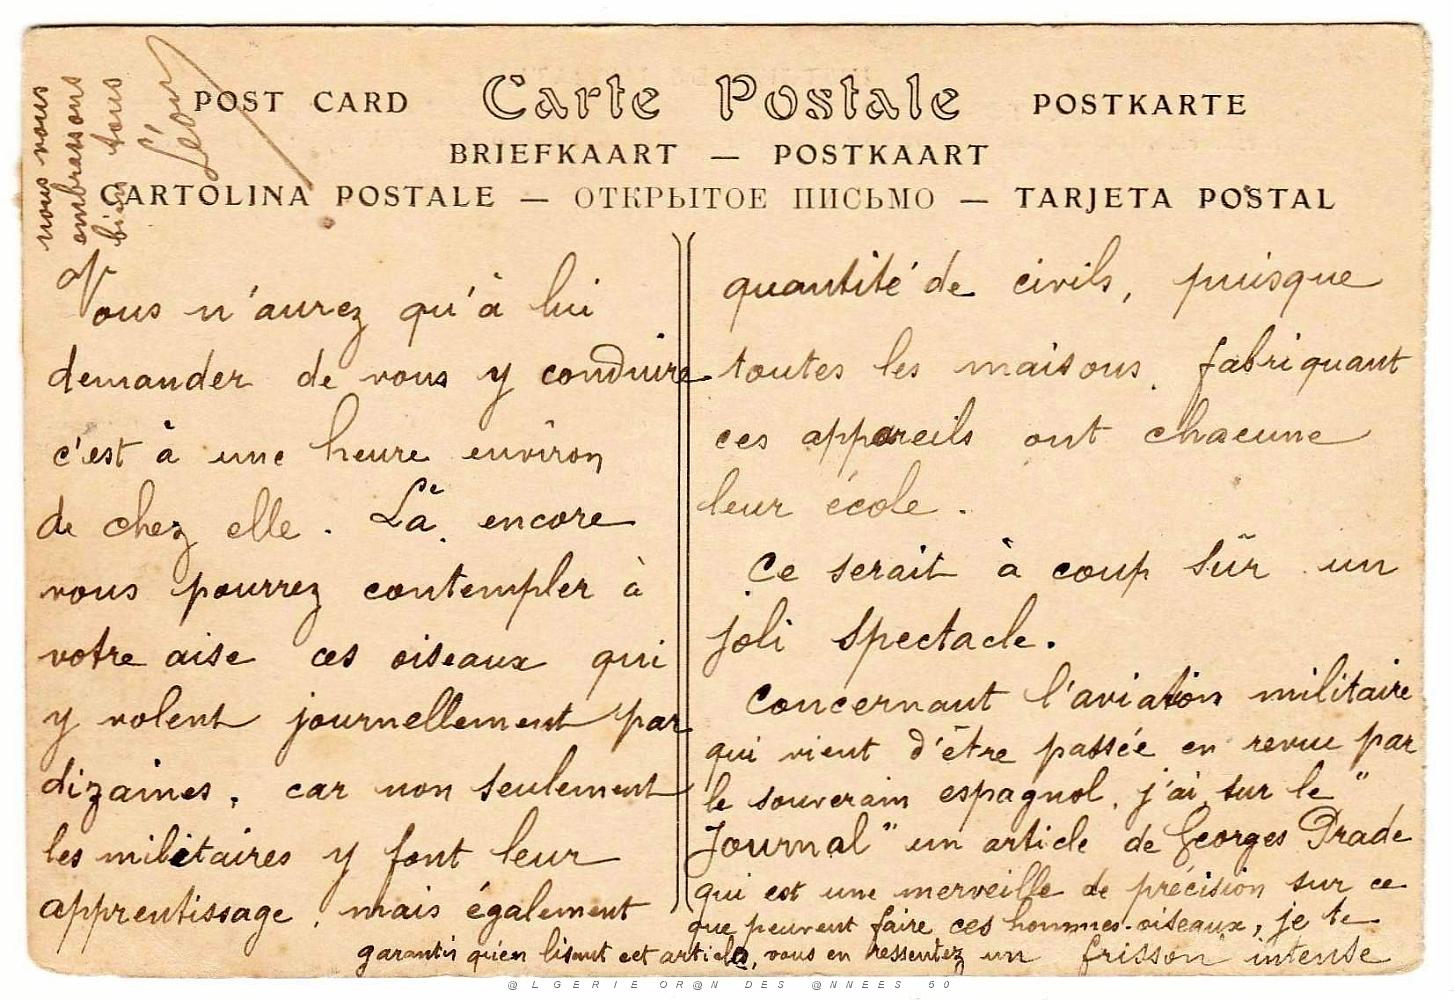 POST CARD Carte Postale POSTKARTE
BRIEFKAART — POSTKAART
CARTOLINA POSTALE — ОТКРЫТОЕ ПИСЬМО — TARJETA POSTAL
nous vous
embrassons
bien tous
Léon
Vous n'aurez qu'à lui
demander de vous y conduire
c'est à une heure environ
de chez elle. Là encore
vous pourrez contempler à
votre aise ces oiseaux qui
y volent journellement par
dizaines, car non seulement
les militaires y font leur
apprentissage, mais également
quantité de civils, puisque
toutes les maisons fabriquant
ces appareils ont chacune
leur école.
Ce serait à coup sûr un
joli spectacle.
Concernant l'aviation militaire
qui vient d'être passée en revue par
le souverain espagnol, j'ai sur le "
Journal" un article de Georges Prade
qui est une merveille de précision sur ce
que peuvent faire ces hommes-oiseaux, je te
garantis qu'en lisant cet article, vous en ressentez un frisson intense
@LGERIE OR@N DES @NNEES 50